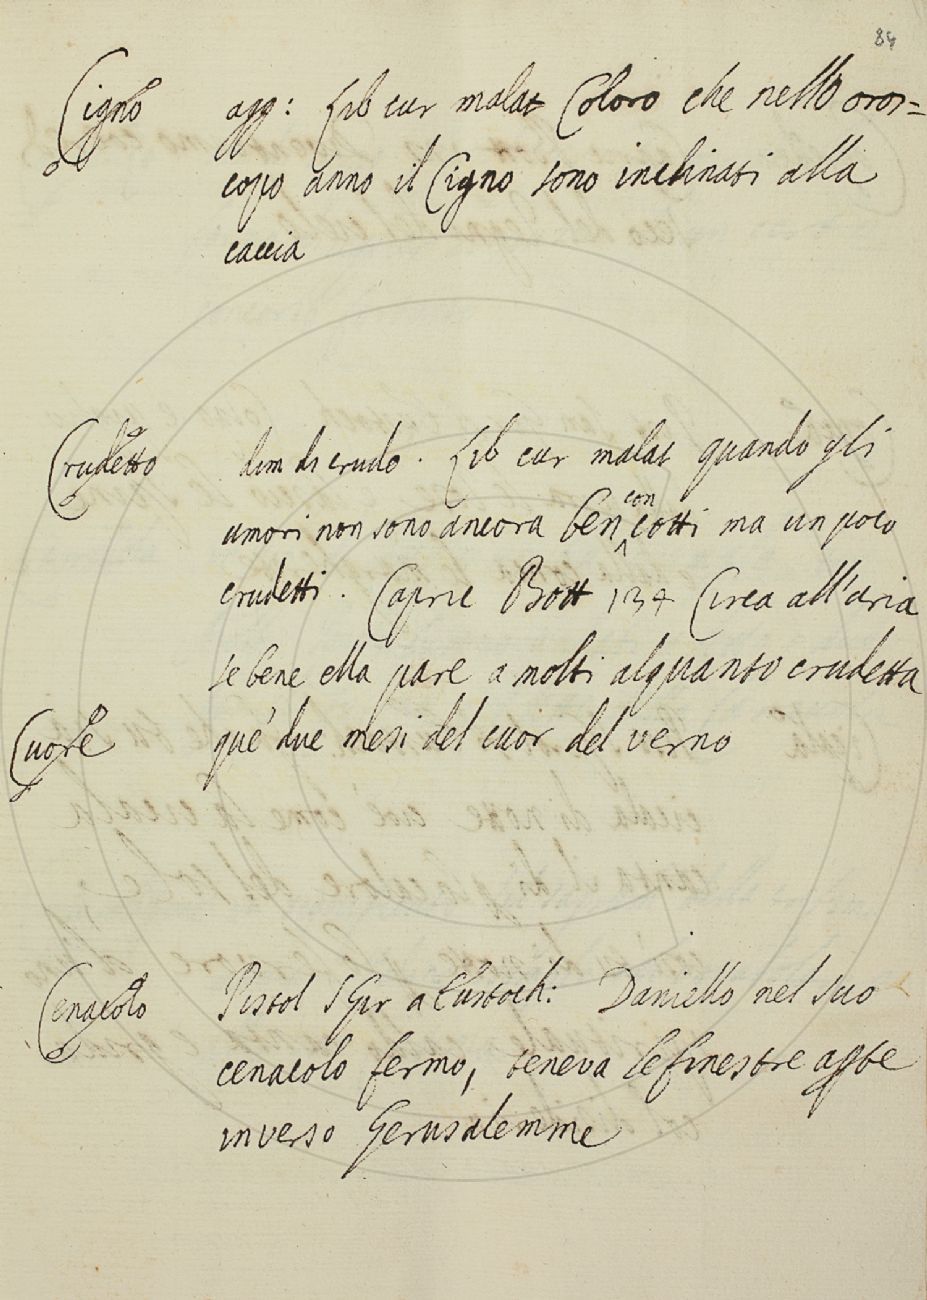 84
Cigno agg: Lib cur malat Coloro che nello oros=
copo anno il Cigno sono inclinati alla
caccia
Crudetto dim di crudo. Lib cur malat quando gli
umori non sono ancora ben con cotti ma un poco
crudetti. Capric Bott 134 Circa all'aria
se bene ella pare a molti alquanto crudetta
Cuore què due mesi del cuor del verno
Cenacolo Pistol S Gir a Eustoch: Daniello nel suo
cenacolo fermo, teneva le finestre apte
inverso Gerusalemme